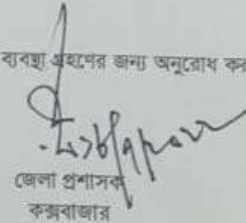 ব্যবস্থা গ্রহণের জন্য অনুরোধ কর
জেলা প্রশাসক
কক্সবাজার